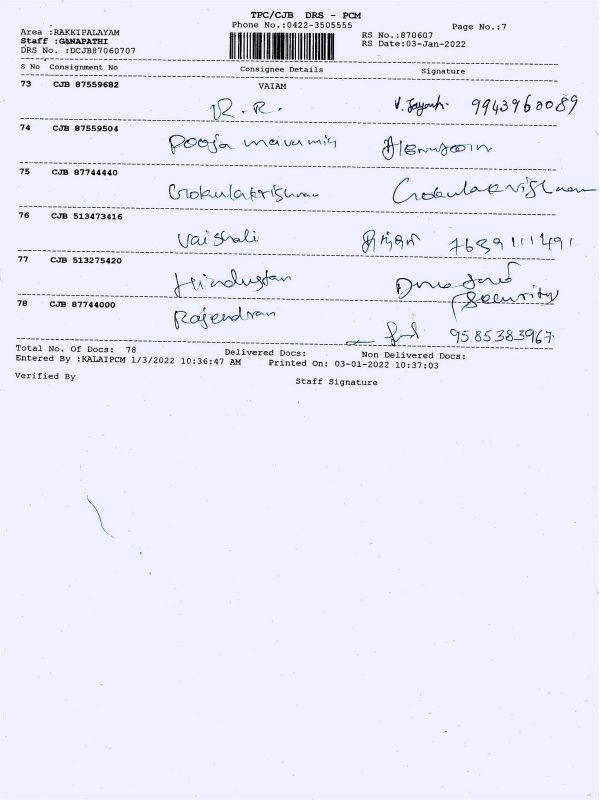 TPC/CJB DRS - PCM
Phone No.:0422-3505555 Page No.:7
Area :RAKKIPALAYAM RS No.:870607
Staff :GANAPATHI RS Date:03-Jan-2022
DRS No. :DCJB87060707
S No Consignment No Consignee Details Signature
73 CJB 87559682 VAIAM
R.R. V. Jayanth. 9943960089
74 CJB 87559504
Pooja
75 CJB 87744440
Gokulakrishnan Gokulakrishnan
76 CJB 513473416
Vaishali 7639111491
77 CJB 513275420
Hindustan
Security
78 CJB 87744000
Rajendran 9585383967
Total No. Of Docs: 78 Delivered Docs: Non Delivered Docs:
Entered By :KALAIPCM 1/3/2022 10:36:47 AM Printed On: 03-01-2022 10:37:03
Verified By Staff Signature